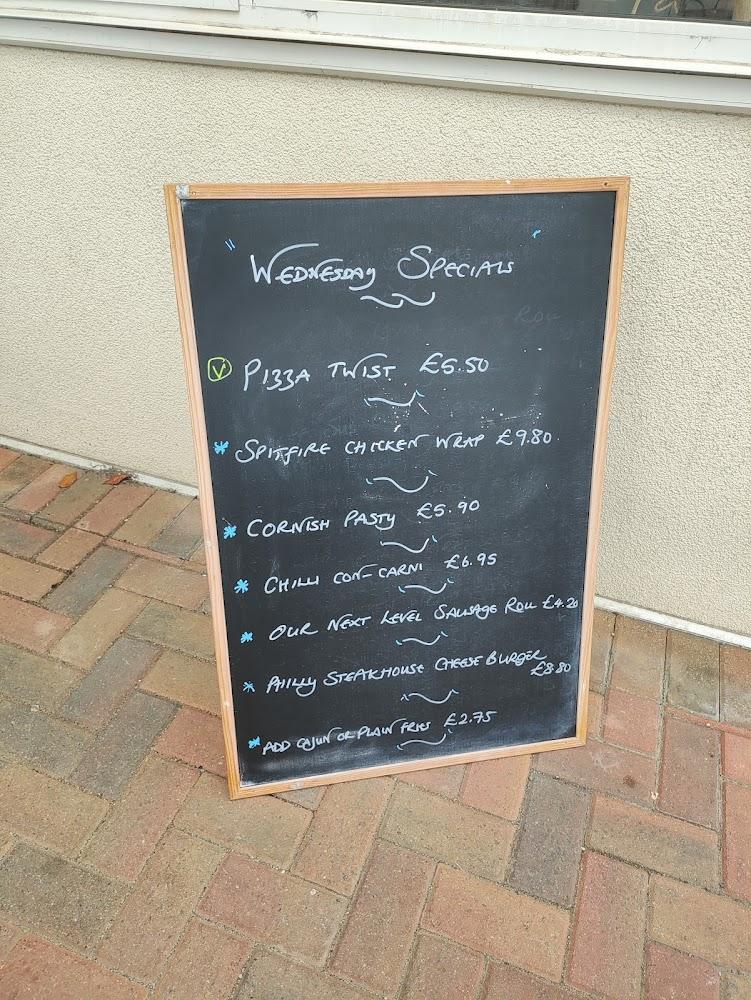 " WEDNESDAY SPECIALS "
V PIZZA TWIST £5.50
* SPITFIRE CHICKEN WRAP £9.80
* CORNISH PASTY £5.90
* CHILLI CON-CARNI £6.95
* OUR NEXT LEVEL SAUSAGE ROLL £4.20
* PHILLY STEAKHOUSE CHEESE BURGER
£8.80
* ADD CAJUN OR PLAIN FRIES £2.75